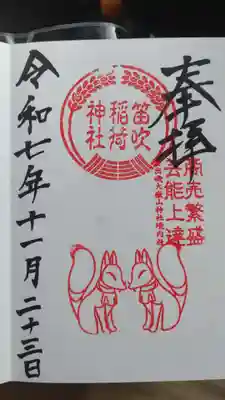 奉拝
商売繁盛
芸能上達
出鴻大嶽山神社境内社
笛吹
稲荷
神社
令和七年十一月二十三日